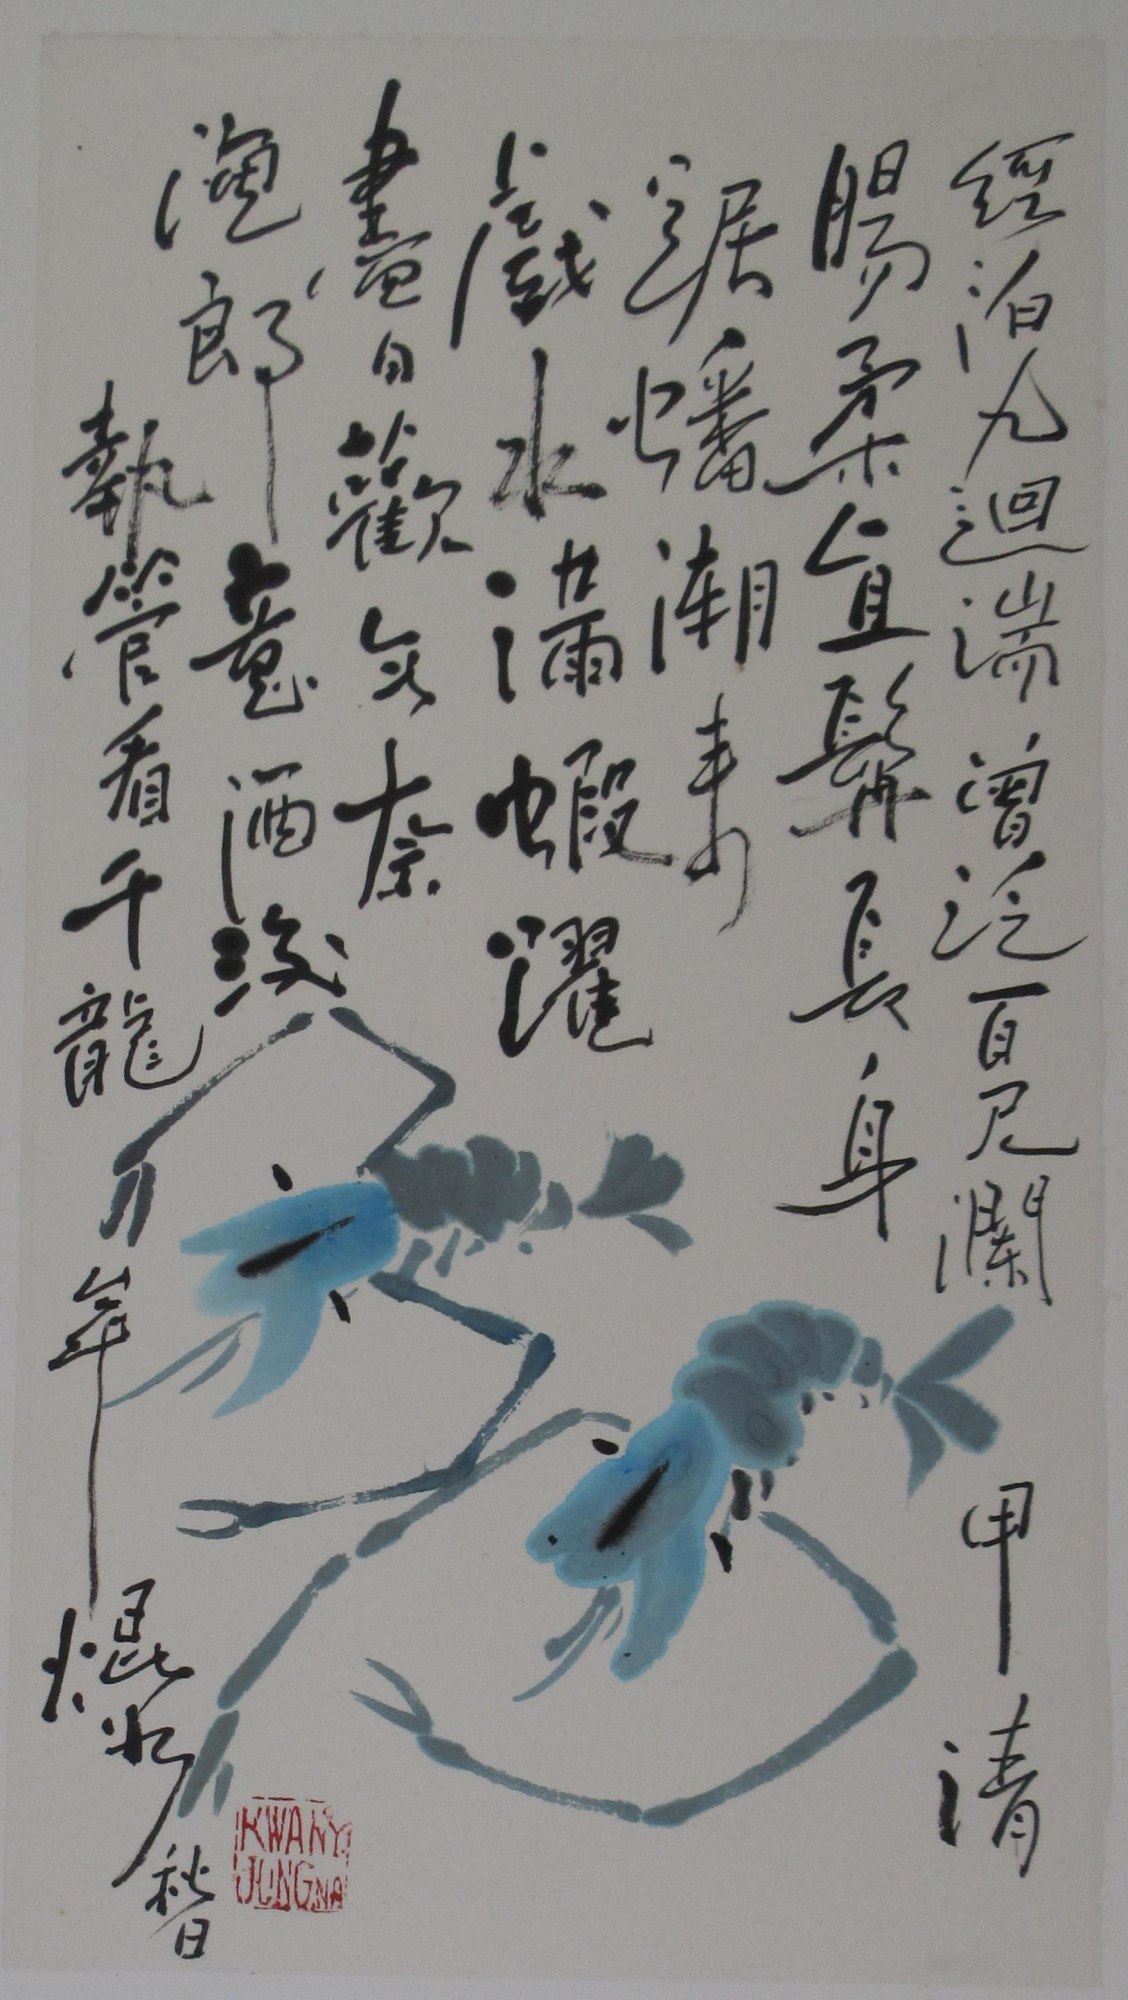 經泊九迴湍曾泛百尺瀾甲清
腸柔宜鬚長身
踞蟠潮來
戲水滿蝦躍
畫日歡無奈
漁郎意酒後
執管看千龍
年焜
秋日
KWANY
JUNG NA